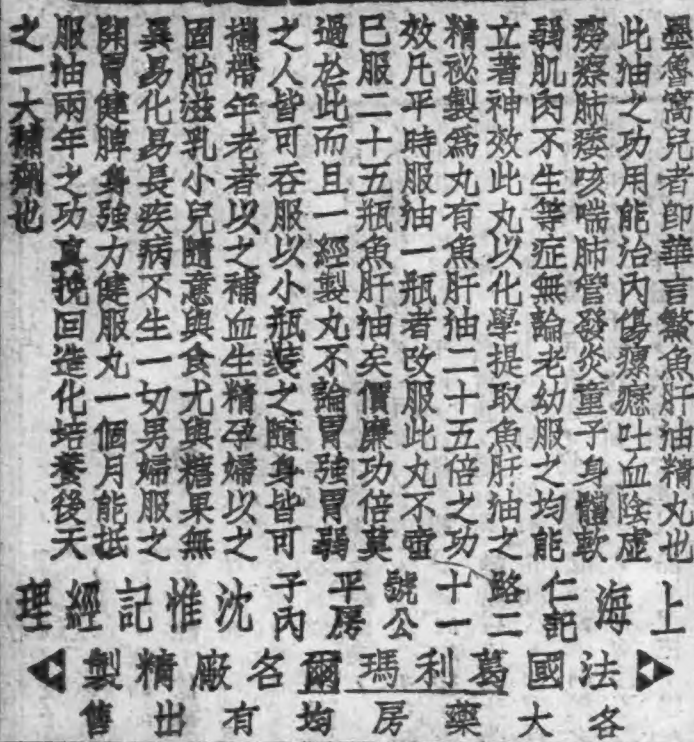 墨魯窩兒者即華言鰵魚肝油精丸也
此油之功用能治內傷瘰癧吐血陰虛
癆瘵肺痿咳喘肺管發炎童子身體軟
弱肌肉不生等症無論老幼服之均能
立著神效此丸以化學提取魚肝油之
精祕製爲丸有魚肝油二十五倍之功
效凡平時服油一瓶者改服此丸不啻
已服二十五瓶魚肝油矣價廉功倍莫
過於此而且一經製丸不論胃強胃弱
之人皆可吞服以小瓶裝之隨身皆可
攜帶年老者以之補血生精孕婦以之
固胎滋乳小兒隨意與食尤與糖果無
異易化易長疾病不生一切男婦服之
開胃健脾身強力健服丸一個月能抵
服油兩年之功真挽回造化培養後天
之一大補劑也
上海仁記路二十一號公平房子內沈惟記經理
法國葛利瑪爾名廠精製
各大藥房均有出售